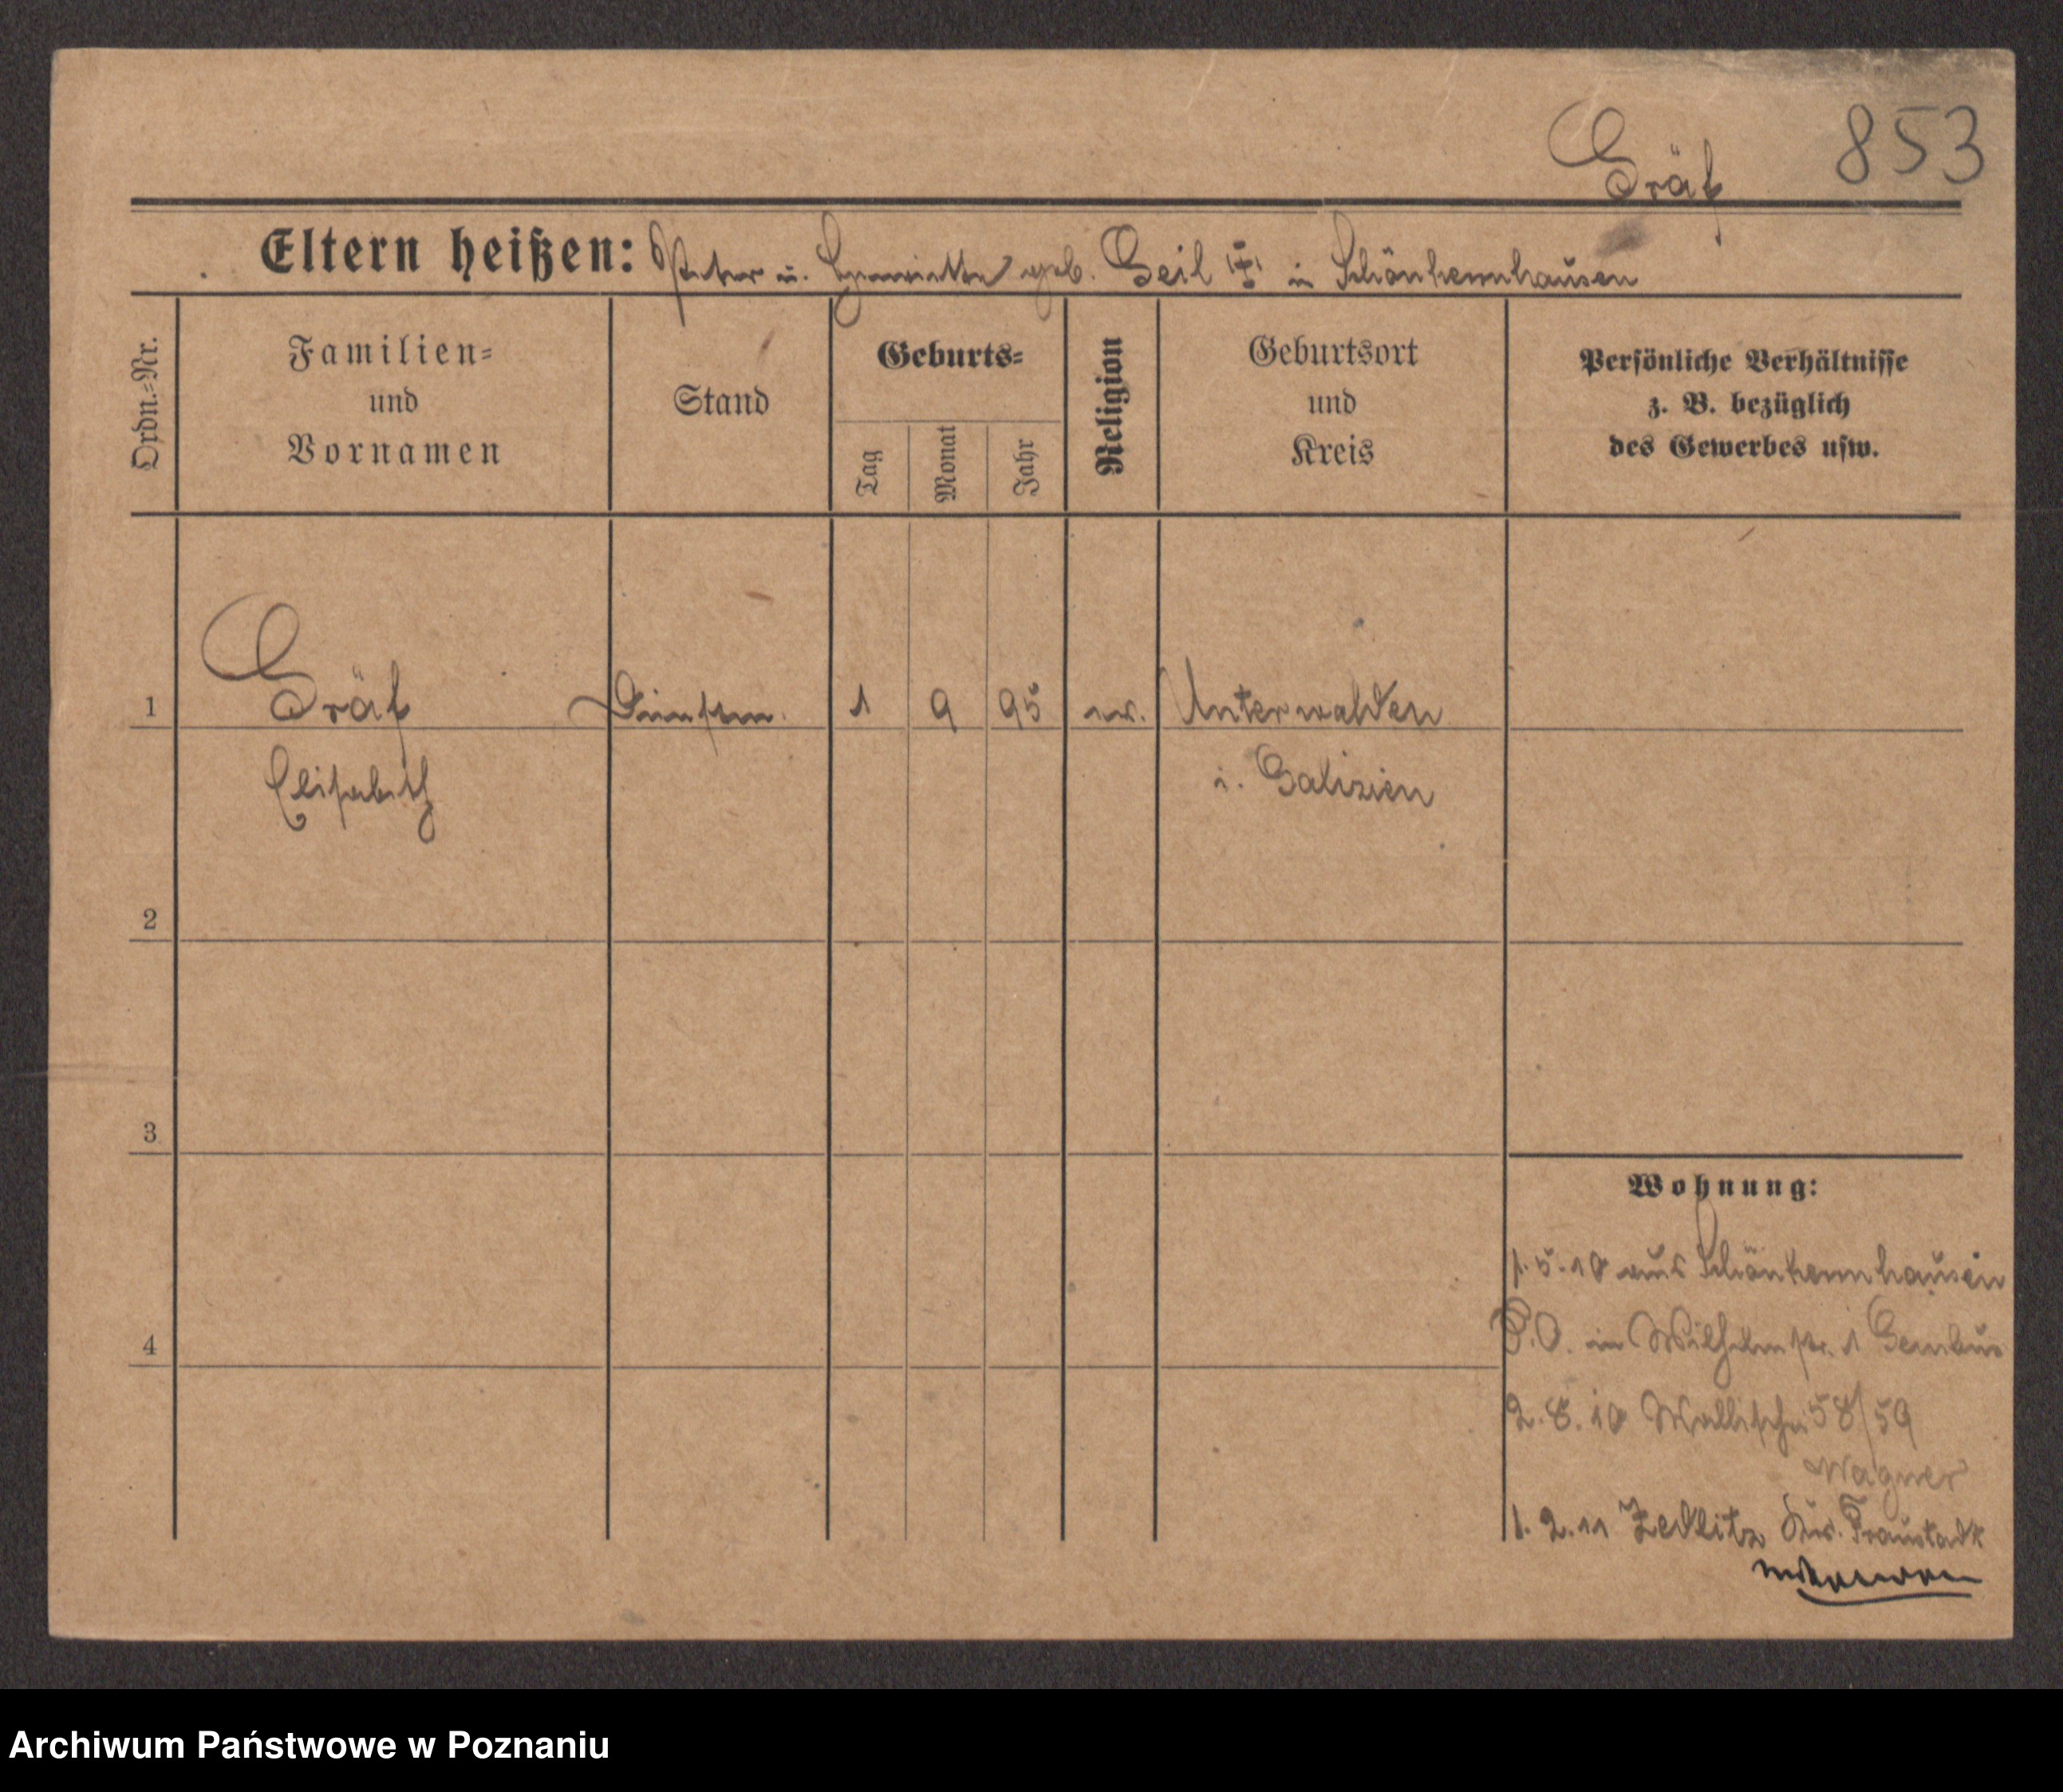 Gräf 853
Eltern heißen: Peter u. Henriette geb. Geil in Schönherrnhausen
Ordn.=Nr.
Familien=
und
Vornamen
Stand
Geburts=
Tag
Monat
Jahr
Religion
Geburtsort
und
Kreis
Persönliche Verhältnisse
z. B. bezüglich
des Gewerbes usw.
1 Gräf Dienstm. 1 9 95 ev. Unterwalden
Elisabeth i. Galizien
2
3
4
Wohnung:
1.5.10 aus Schönherrnhausen
P.O. in Wilhelmstr. 1
2.8.10 Wallischei 58/59
Wagner
1.2.11 Zedlitz Krs. Fraustadt
Archiwum Państwowe w Poznaniu